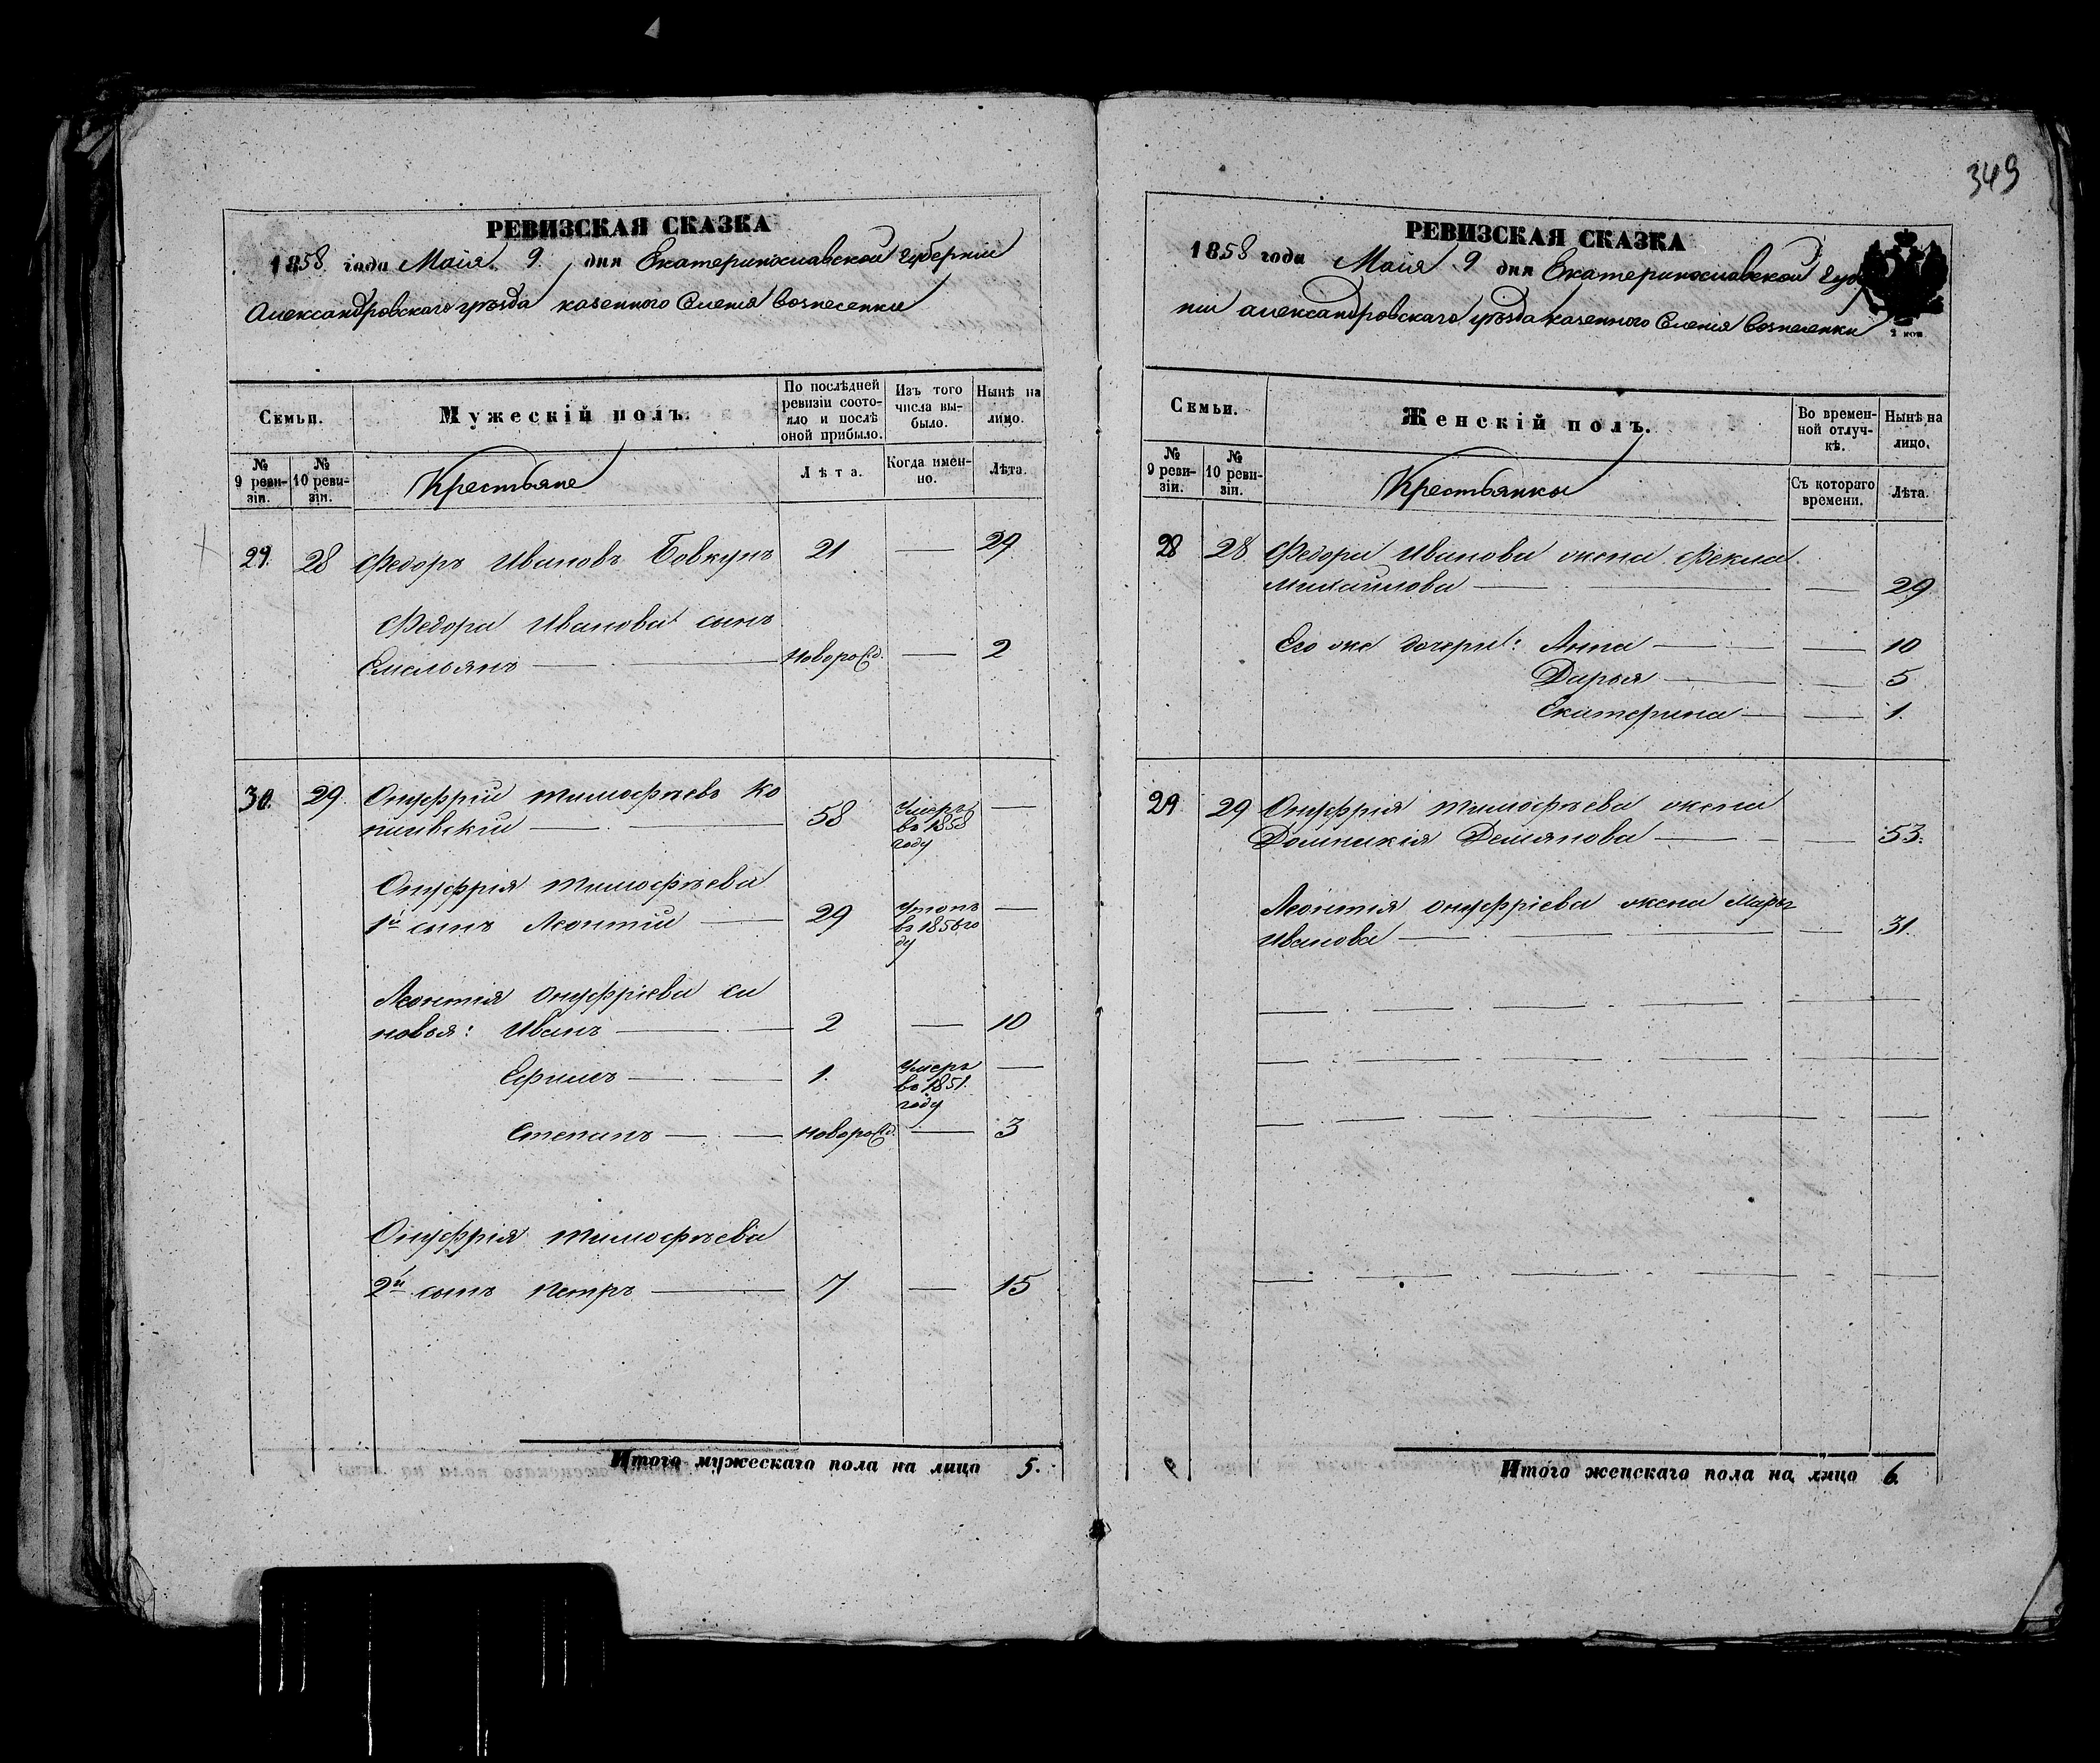 349
РЕВИЗСКАЯ СКАЗКА
1858 года Маія 9 дня Екатеринославской губерніи
Александровскаго уѣзда казенного Селенія Вознесенки
Семьи.
Мужескій полъ.
По послѣдней ревизіи состояло и послѣ оной прибыло.
Изъ того числа выбыло.
Нынѣ на лицо.
№ 9 ревизіи.
№ 10 ревизіи.
Крестьяне
Лѣта.
Когда именно.
Лѣта.
29. 28 Федоръ Ивановъ Бовкунъ 21 — 29
Федора Иванова сынъ
Емельянъ — новорожд. — 2
30. 29. Онуфрій Тимофѣевъ Ко
пиевскій — 58 Умеръ въ 1858 году —
Онуфрія Тимофѣева
1й сынъ Леонтій — 29 Утопъ въ 1856 году —
Леонтія Онуфріева сы
новья: Иванъ — 2 — 10
Ефимъ — 1. Умеръ въ 1851. году —
Степанъ — новорожд. — 3
Онуфрія Тимофѣева
2й сынъ Петръ — 7 — 15
Итого мужескаго пола на лицо 5.
РЕВИЗСКАЯ СКАЗКА
1858 года Маія 9 дня Екатеринославской Губер
ніи александровскаго уѣзда казенного Селенія Вознесенки
Семьи.
Женскій полъ.
Во временной отлучкѣ.
Нынѣ на лицо.
№ 9 ревизіи.
№ 10 ревизіи.
Крестьянки
Съ котораго времени.
Лѣта.
28 28 Федора Иванова жена Фекла
Михаилова — — 29
Его же дочери: Анна — — 10
Дарья — — 5
Екатерина — — 1.
29. 29 Онуфрія Тимофѣева жена
Домникія Демянова — — 53.
Леонтія Онуфріева жена Марья
Иванова — — 31.
Итого женскаго пола на лицо 6.